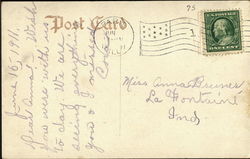 75
Post Card
1
June 16, 1911.
Dear Anna - Wish
you were with us
to day. We are
seeing everything
you &
Miss Anna Bruner
La Fontaine
Ind